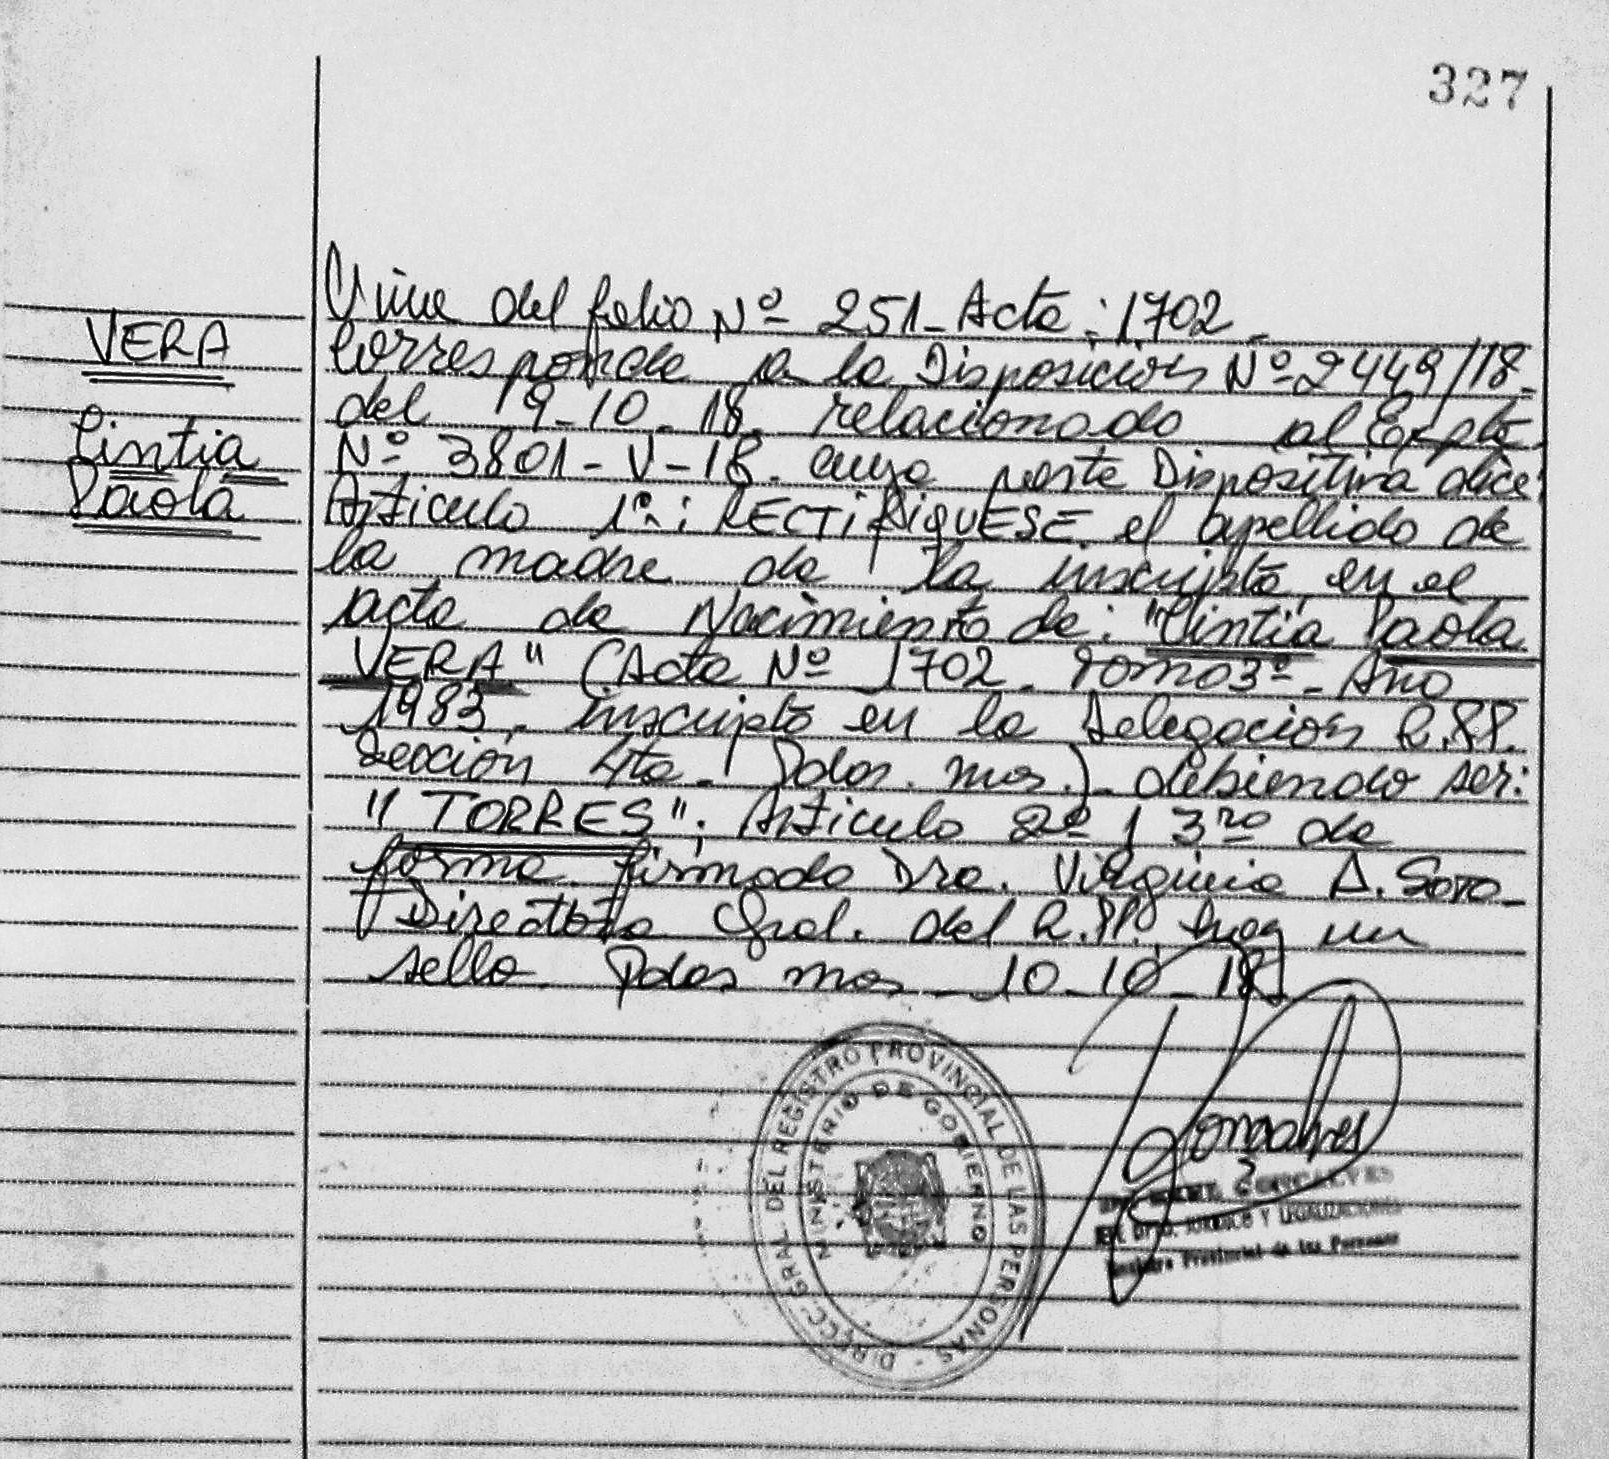 327
VERA
Cintia
Paola
Viene del folio Nº 251 - Acta: 1702 -
Corresponde a la Disposicion Nº 2449/18 -
del 9-10-18. relacionado al Expte.
Nº 3801-V-18. cuya parte Dispositiva dice:
Articulo 1º: RECTIFIQUESE el apellido de
la madre de la inscripta en el
acta de Nacimiento de: "Cintia Paola
VERA" (Acta Nº 1702. Tomo 3º - Año
1983, inscripta en la Delegacion R.PP.
Seccion 4ta - Pdas. Mnes.) - debiendo ser:
"TORRES"; Articulo 2º y 3ro de
forma firmado Dra. Virginia A. Soto -
Directora Gral. del R.PP. hay un
sello. Pdas Mnes - 10-10-18
DIRECC. GRAL. DEL REGISTRO PROVINCIAL DE LAS PERSONAS -
MINISTERIO DE GOBIERNO
JURIDICO Y LEGALIZACIONES
Registro Provincial de las Personas